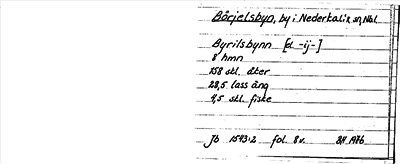 Börjelsbyn, by i Nederkalix sn, Nbl.
Byrilsbynn [el. -ij-]
8 hmn
158 stl. åker
28,5 lass äng
4,5 stl. fiske
Jb 1543:2 fol. 8 v. 1976